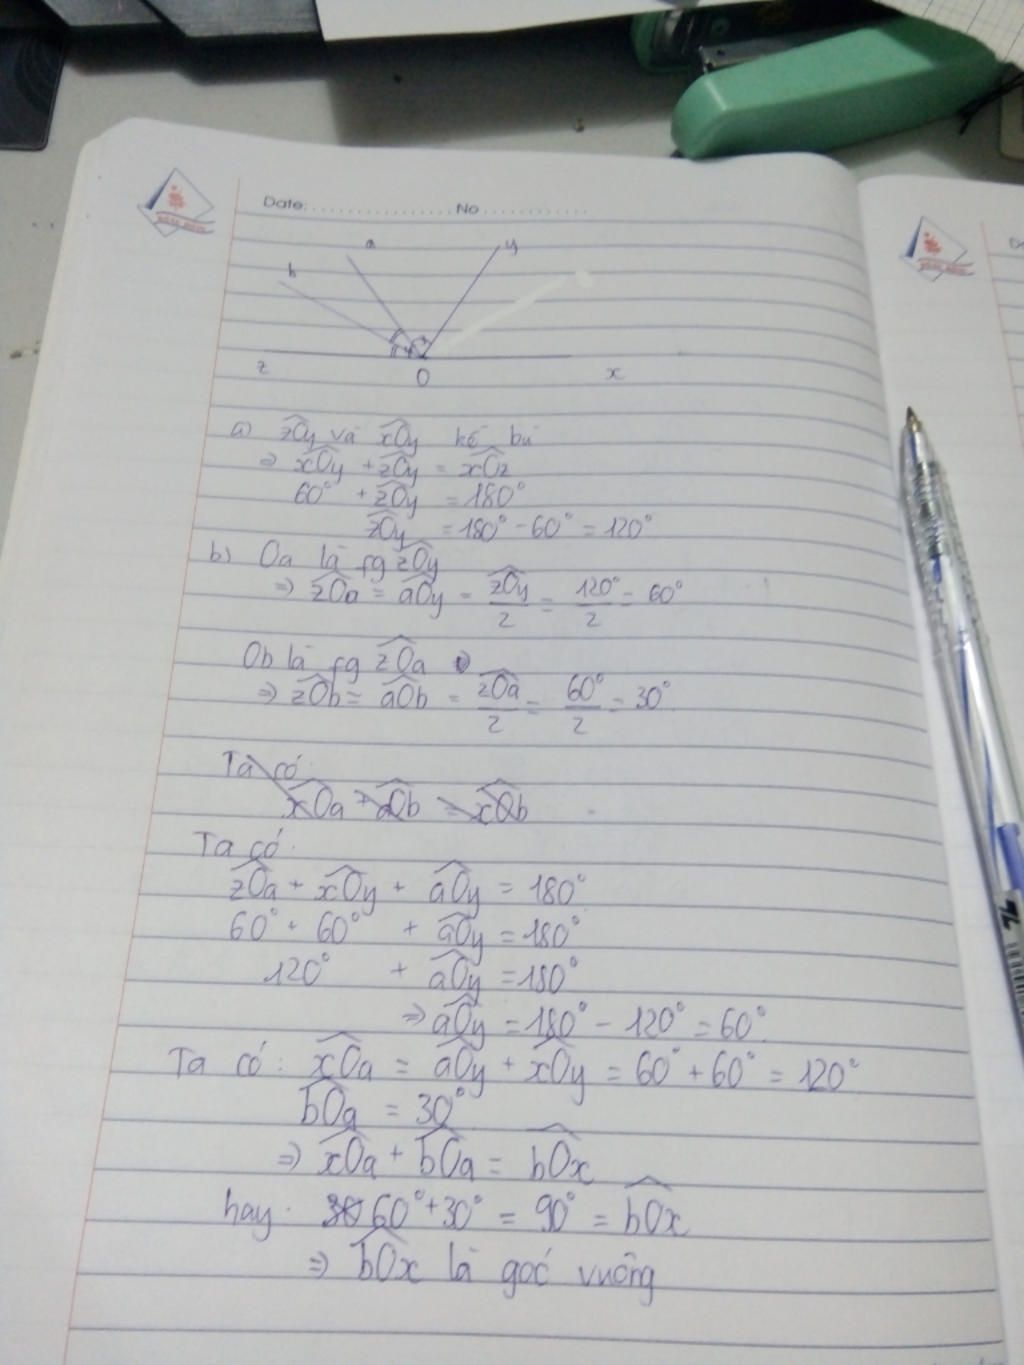 Date: No
a
y
b
z
O
x
a) zOy và xOy kề bù
⇒ xOy + zOy = xOz
60° + zOy = 180°
zOy = 180° - 60° = 120°
b) Oa là fg zOy
⇒ zOa = aOy = zOy/2 = 120°/2 = 60°
Ob là fg zOa
⇒ zOb = aOb = zOa/2 = 60°/2 = 30°
Ta có
xOa + aOb = xOb
Ta có:
zOa + xOy + aOy = 180°
60° + 60° + aOy = 180°
120° + aOy = 180°
⇒ aOy = 180° - 120° = 60°
Ta có: xOa = aOy + xOy = 60° + 60° = 120°
bOa = 30°
⇒ xOa + bOa = bOx
hay 60° + 30° = 90° = bOx
⇒ bOx là góc vuông